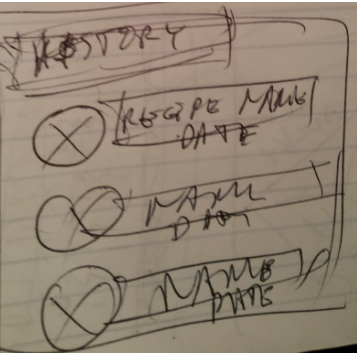 HISTORY
RECIPE NAME
DATE
NAME
DATE
NAME
DATE